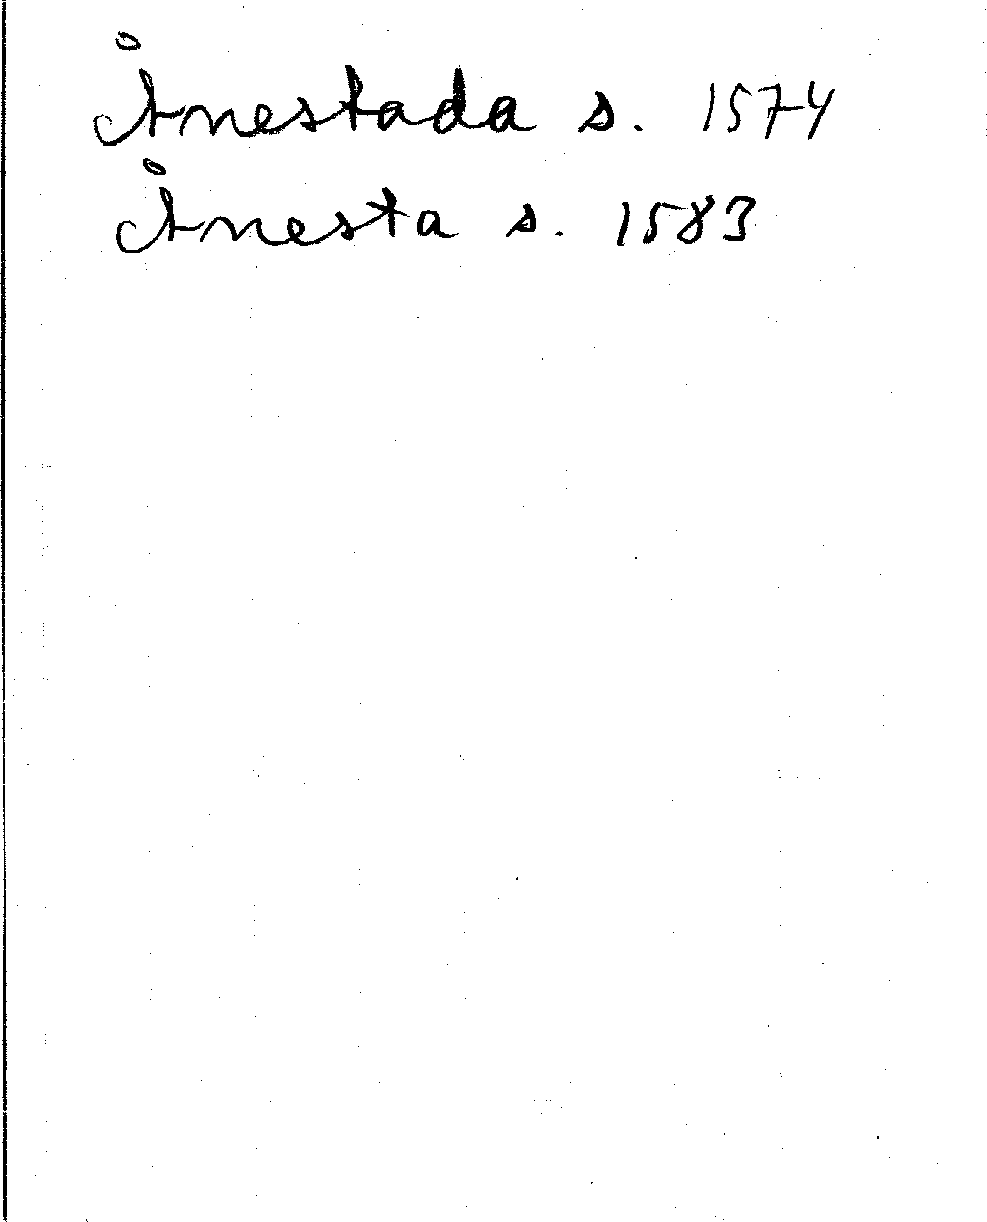 Ånestada s. 1574
Ånesta s. 1583